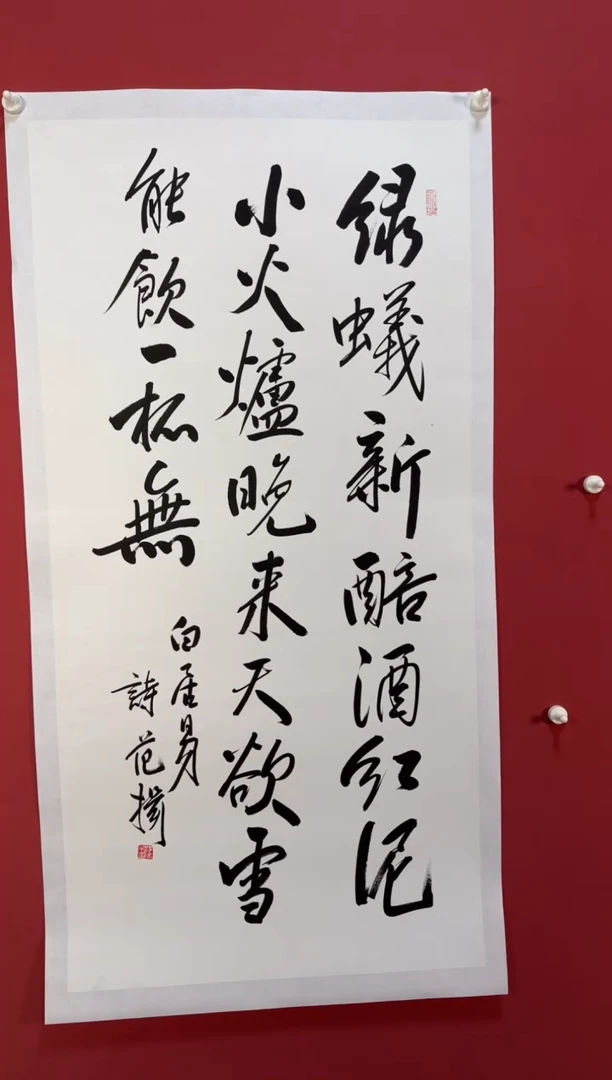 绿蚁新醅酒红泥
小火爐晚来天欲雪
能飲一杯無
白居易
詩范揚